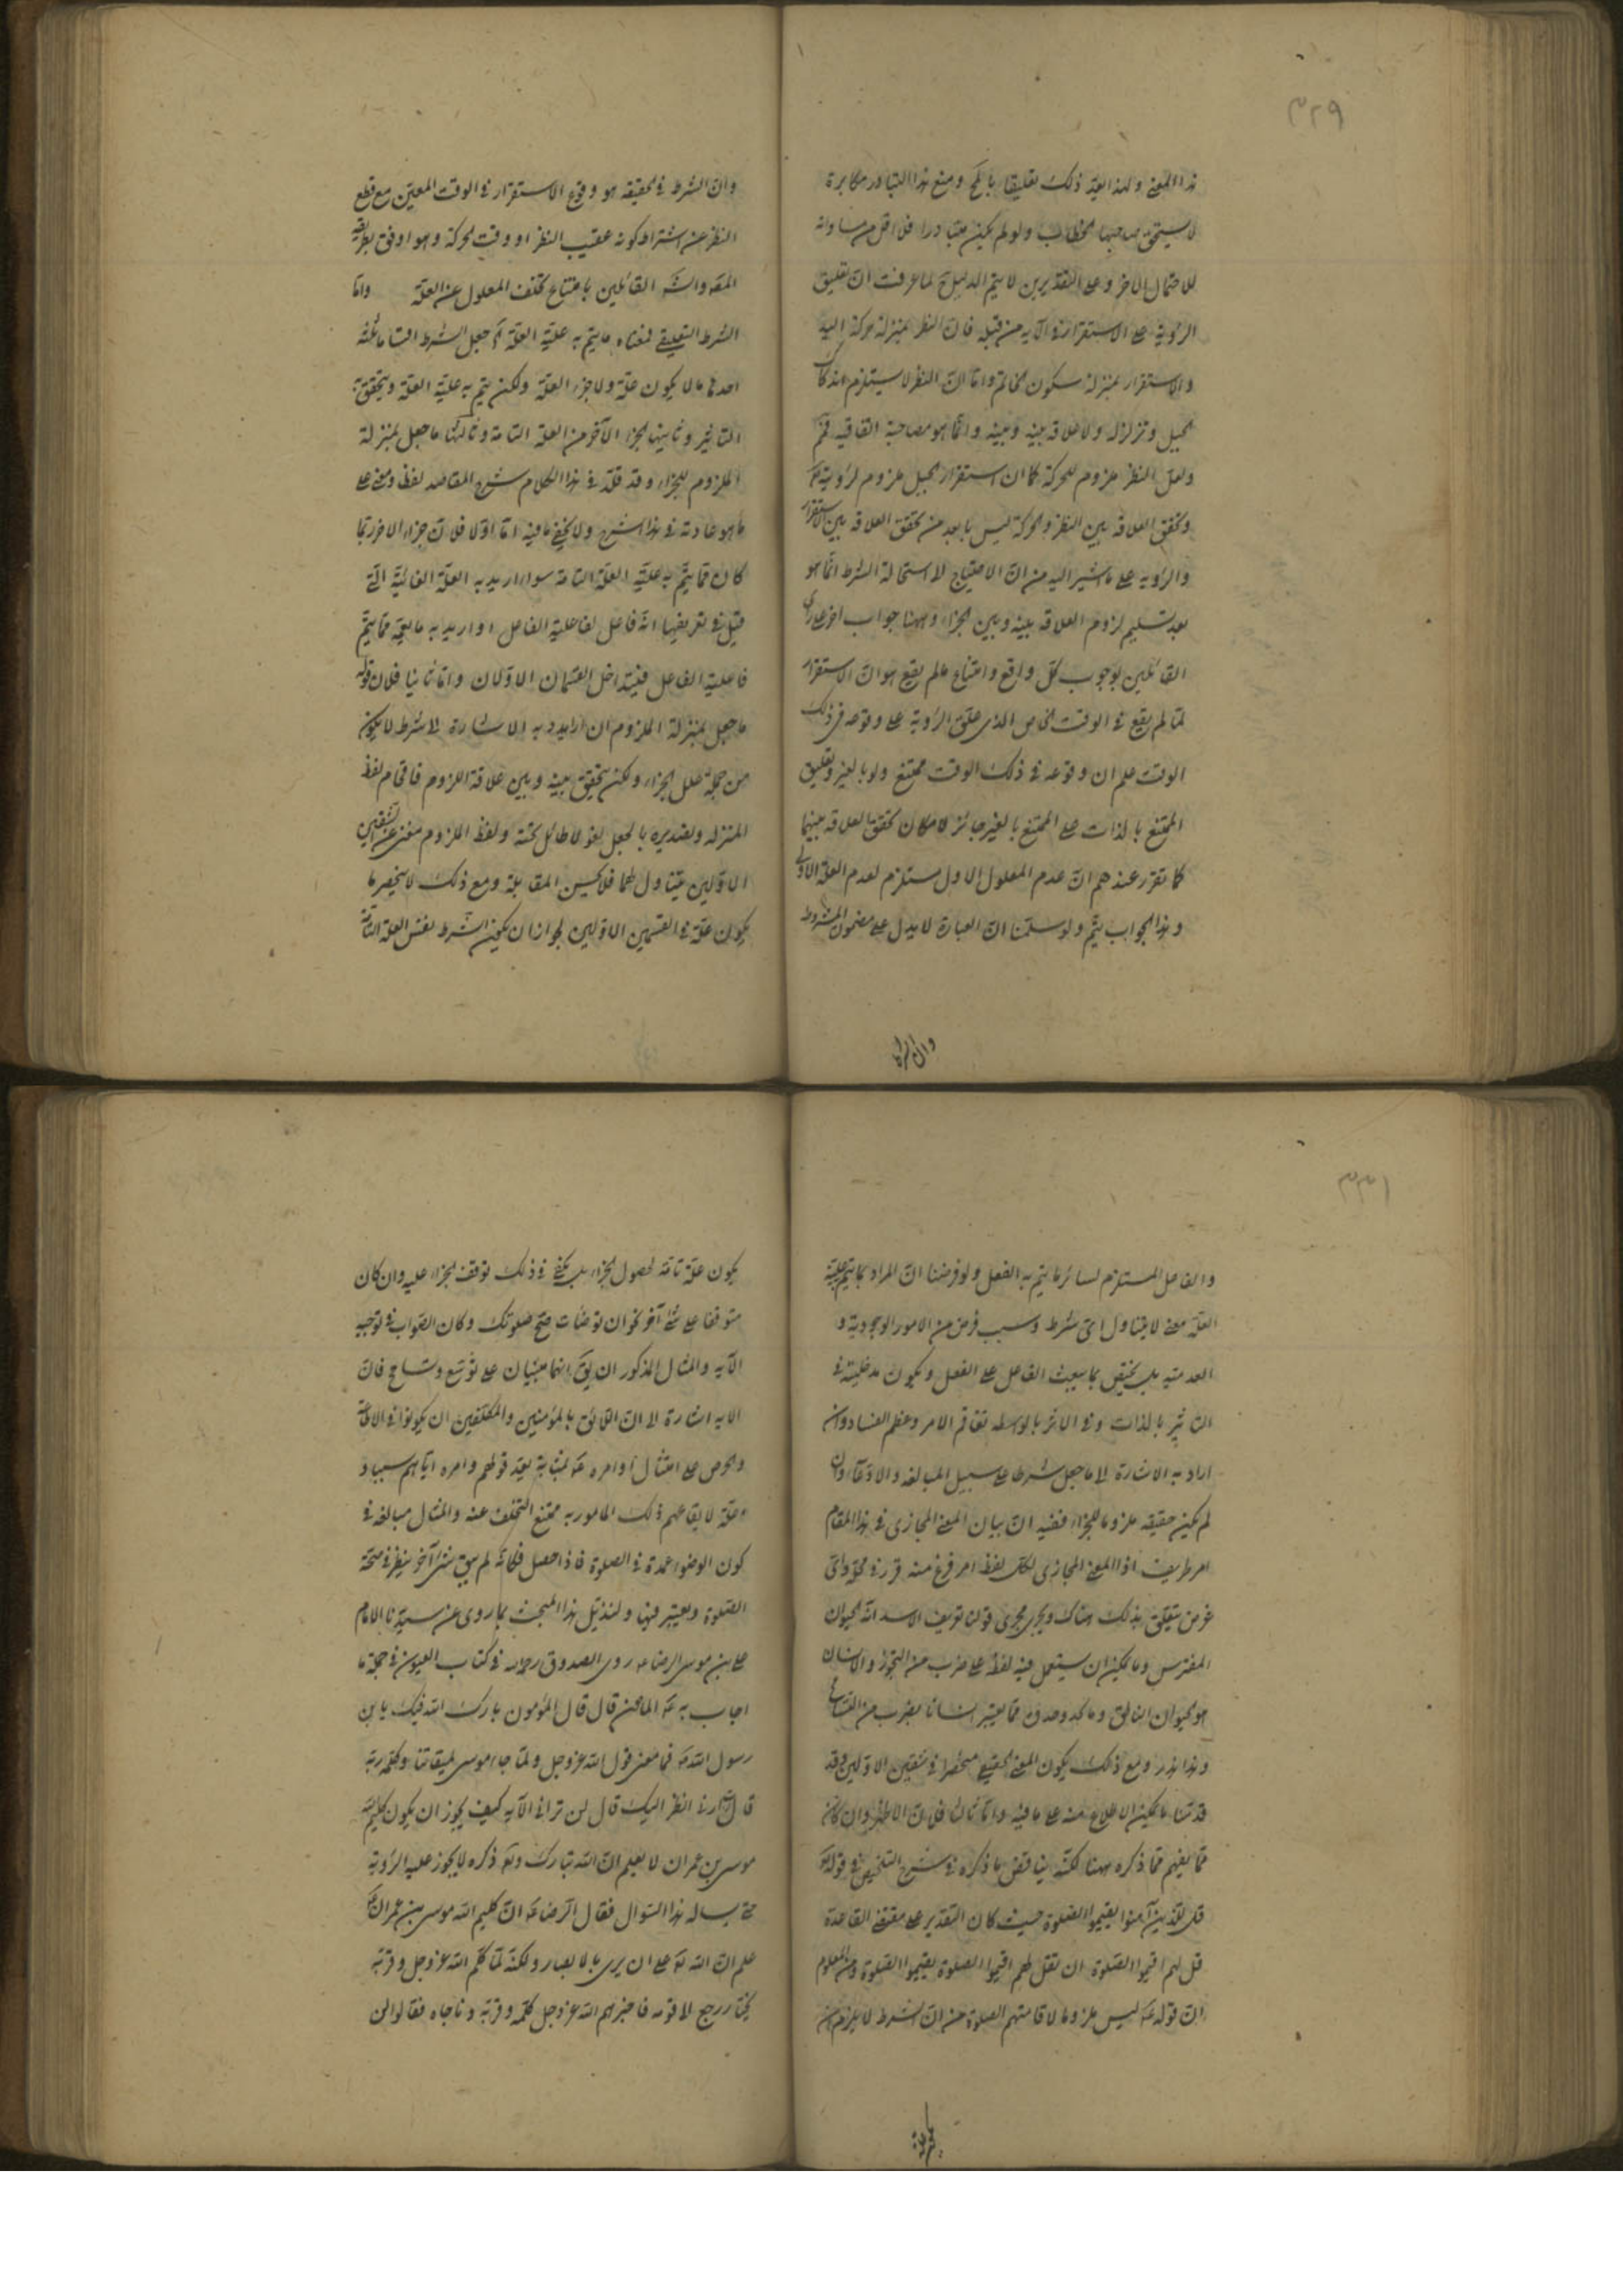 ٣٢٩
هذا المعنى ولهذا يعد ذلك تعليقا بالمح ومنع هذا التبادر مكابرة
لا يستحق صاحبها الخطاب ولو لم يكن متبادرا فلا اقل من مساواته
للاحتمال الاخر وعلى التقديرين لا يتم الدليل لما عرفت ان تعليق
الرؤية على الاستقرار في الآية من قبيله فان النظر بمنزلة حركة اليد
والاستقرار بمنزلة سكون الخاتم واما ان النظر لا يستلزم اندكاك
الجبل وتزلزله ولا علاقة بينه وبينه وانما هو مصاحبة اتفاقية فمم
ولعل النظر ملزوم للحركة كما ان استقرار الجبل ملزوم لرؤيته
وتحقق العلاقة بين النظر والحركة ليس بابعد من تحقق العلاقة بين الاستقرار
والرؤية على ما نشير اليه من ان الاحتياج لاستحالة الشرط انما هو
بعد تسليم لزوم العلاقة بينه وبين الجزاء وههنا جواب اخر على راى
القائلين بوجوب كل واقع وامتناع ما لم يقع هو ان الاستقرار
لما لم يقع في الوقت الخاص الذى علق الرؤية على وقوعه فى ذلك
الوقت علم ان وقوعه في ذلك الوقت ممتنع ولو بالغير وتعليق
الممتنع بالذات على الممتنع بالغير جائز لامكان تحقق العلاقة بينهما
كما تقرر عندهم ان عدم المعلول الاول مستلزم لعدم العلة الاولى
وهذا الجواب يتم ولو سلمنا ان العبارة لا يدل على مضمون المشروط
وان الشرط
وان الشرط في الحقيقة هو وقوع الاستقرار في الوقت المعين مع قطع
النظر عن اشتراط كونه عقيب النظر او وقت الحركة وهو اوفق بطريقة
القائلين بامتناع تخلف المعلول عن العلة واما
الشرط التعليقي فمعناه ما يتم به علية العلة ثم جعل الشرط اقساما ثلثة
احدها ما لا يكون علة ولا جزء العلة ولكن يتم به علية العلة ويتحقق به
التاثير وثانيها الجزء الآخر من العلة التامة وثالثها ما جعل بمنزلة
الملزوم للجزاء وقد قلد في هذا الكلام شرح المقاصد لفظا ومعنى على
ما هو عادته في هذا الشرح ولا يخفى ما فيه اما اولا فلان جزء الاخر ربما
كان مما يتم به علية العلة التامة سواء اريد به العلة الغائية التي
قيل في تعريفها انه فاعل لفاعلية الفاعل او اريد به ما يعمه مما يتم
فاعلية الفاعل فيتداخل القسمان الاولان واما ثانيا فلان قوله
ما جعل بمنزلة الملزوم ان اريد به الاشارة الى شرط لا يكون
من جملة علل الجزاء ولكن يتحقق بينه وبين علاقة اللزوم فاقحام لفظ
المنزلة وتصديره بالجعل لغو لا طائل تحته ولفظ الملزوم مغن عن الشقين
الاولين متناول لهما فلا يحسن المقابلة ومع ذلك لا ينحصر ما
يكون علة في القسمين الاولين لجواز ان يكون الشرط نفس العلة التامة
٣٣١
والفاعل المستلزم لسائر ما يتم به الفعل ولو فرضنا ان المراد بما يتم علية
العلة معنى لا يتناول اى شرط وسبب فرض من الامور الوجودية و
العدمية بل يختص بما يبعث الفاعل على الفعل ويكون مدخليته في
التاثير بالذات وفي الاثر بالواسطة تفاقم الامر وعظم الفساد وان
اراد به الاشارة الى ما جعل شرطا على سبيل المبالغة والادعاء وان
لم يكن حقيقة ملزوما للجزاء ففيه ان بيان المعنى المجازى في هذا المقام
امر طريف اذ المعنى المجازى لكل لفظ امر فرغ منه قرر في محله واى
غرض يتعلق بذلك هناك ويجرى مجرى قولنا تعريف الاسد انه الحيوان
المفترس وما يمكن ان يستعمل فيه لفظه على ضرب من التجوز والانسان
هو الحيوان الناطق وما مما يعتبر انسانا بضرب من التسامح
وهذا هذر ومع ذلك يكون المعنى الحقيقي منحصرا في شقين الاولين وقد
قدمنا ما يمكن الاطلاع منه على ما فيه واما ثالثا فلان الاظهر وان كان
مما يفهم مما ذكره ههنا لكنه يناقض ما ذكره في شرح التلخيص في قوله تعالى
قل للذين آمنوا يقيموا الصلوة حيث كان التقدير على مقتضى القاعدة
قل لهم اقيموا الصلوة ان تقل لهم اقيموا الصلوة يقيموا الصلوة ومن المعلوم
ان قوله ليس ملزوما لاقامتهم الصلوة من ان الشرط لا يلزم ان
يكون علة تامة لحصول الجزاء بل يكفى في ذلك توقف الجزاء عليه وان كان
متوقفا على شئ آخر نحو ان توضأت صح صلوتك وكان الصواب في توجيه
الآية والمثال المذكور ان يق انهما مبنيان على توسع وتسامح فان
الآية اشارة الى ان اللائق بالمؤمنين والمكلفين ان يكونوا في الاطاعة
والحرص على امتثال اوامره بمثابة يعد قولهم وامره اياهم سببا و
علة لايقاعهم ذلك المامور به ممتنع التخلف عنه والمثال مبالغة في
كون الوضوء عمدة في الصلوة فاذا حصل فكانه لم يبق شئ آخر ينظر في صحة
الصلوة ويعتبر فيها ولنذيل هذا المبحث بما روى عن سيدنا الامام
على بن موسى الرضا روى الصدوق رحمه الله في كتاب العيون في جملة ما
اجاب به المامون قال قال المؤمون بارك الله فيك يا بن
رسول الله فما معنى قول الله عز وجل ولما جاء موسى لميقاتنا وكلمه ربه
قال رب ارنى انظر اليك قال لن ترانى الآية كيف يجوز ان يكون كليم الله
موسى بن عمران لا يعلم ان الله تبارك وتعالى ذكره لا يجوز عليه الرؤية
حتى يسأله هذا السؤال فقال الرضا ان كليم الله موسى بن عمران
علم ان الله على ان يرى بالابصار ولكنه لما كلم الله عز وجل وقربه
نجيا رجع الى قومه فاخبرهم الله عز وجل كلمه وقربه وناجاه فقالوا لن